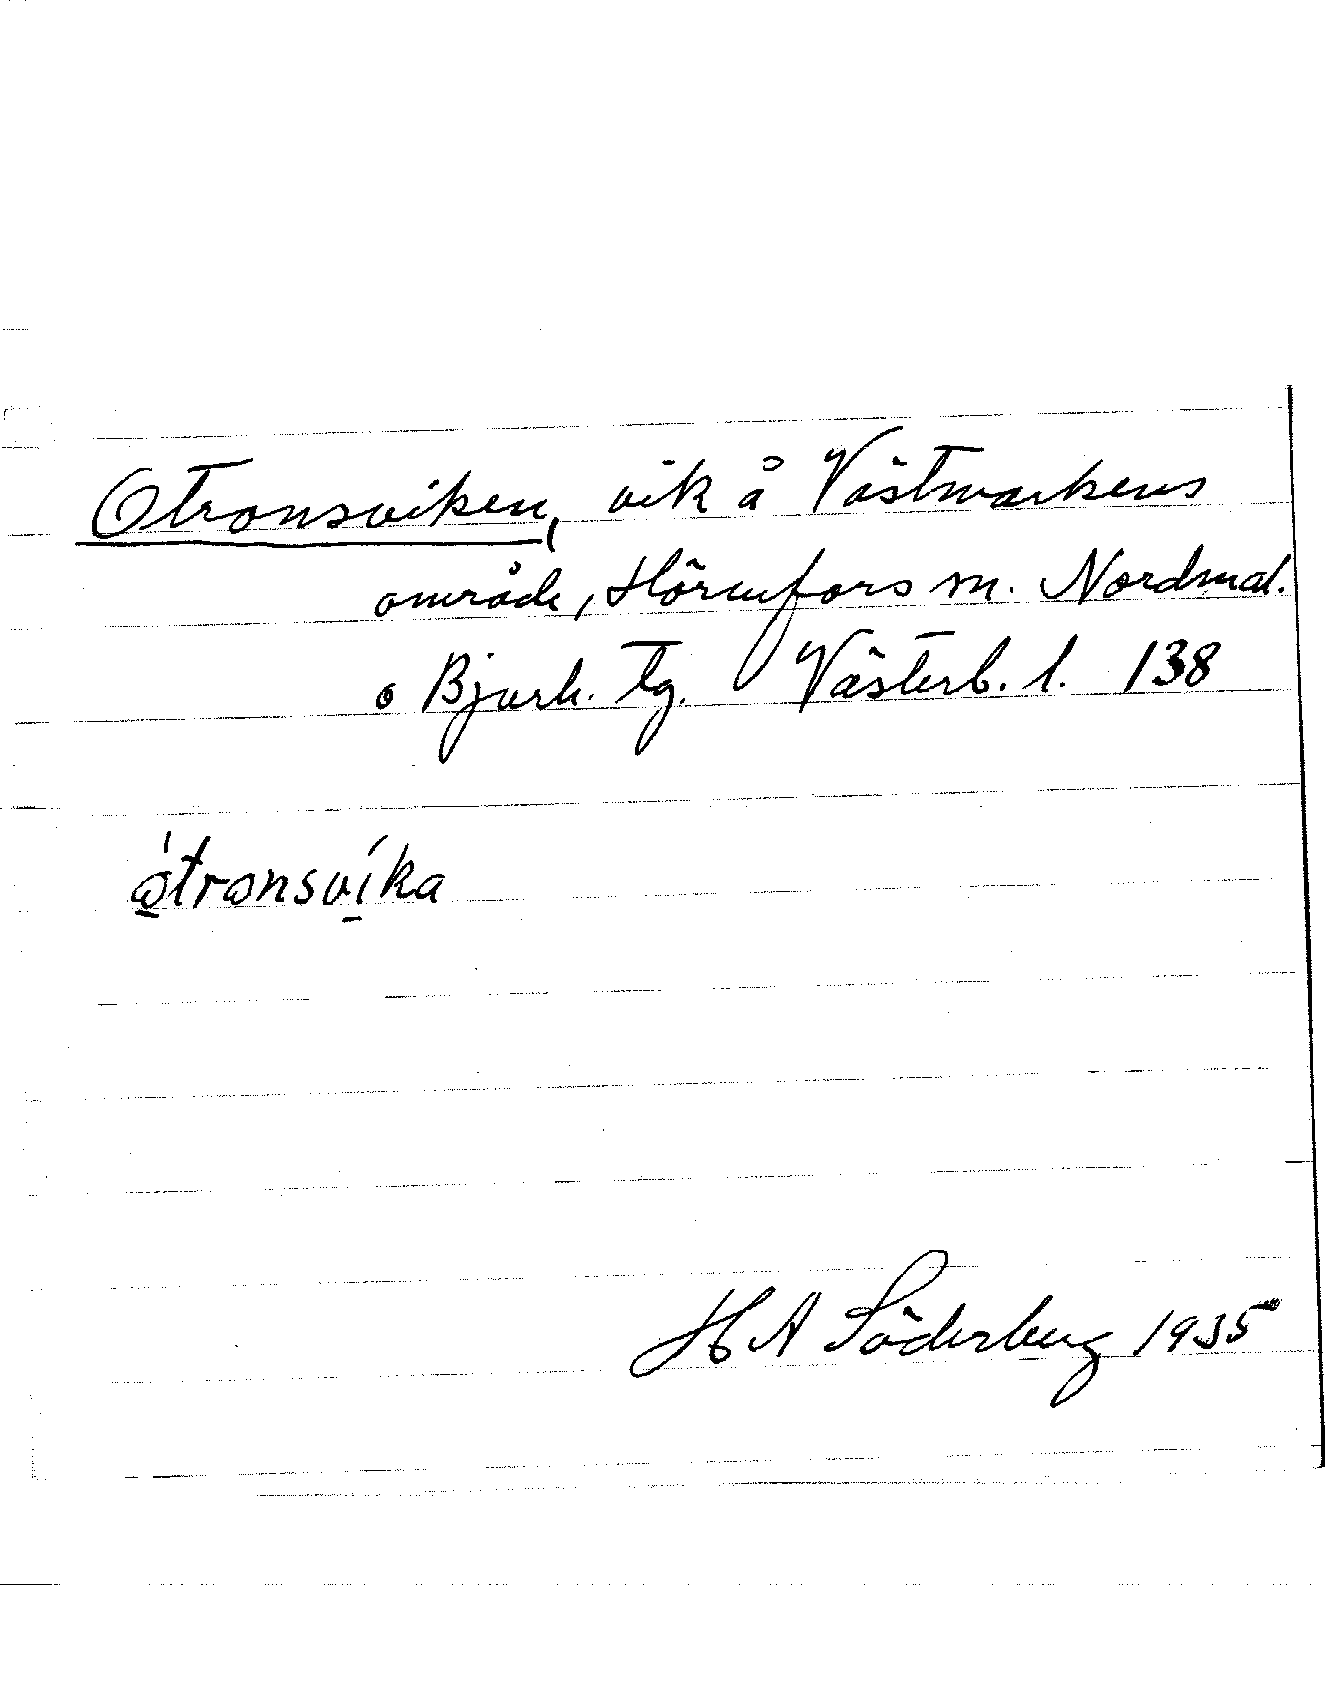 Otronsviken, vik å Västmarkens
område, Hörnefors m. Nordmal.
o Bjurh. tg. Västerb. l. 138
ótronsvíka
H A Söderberg 1935